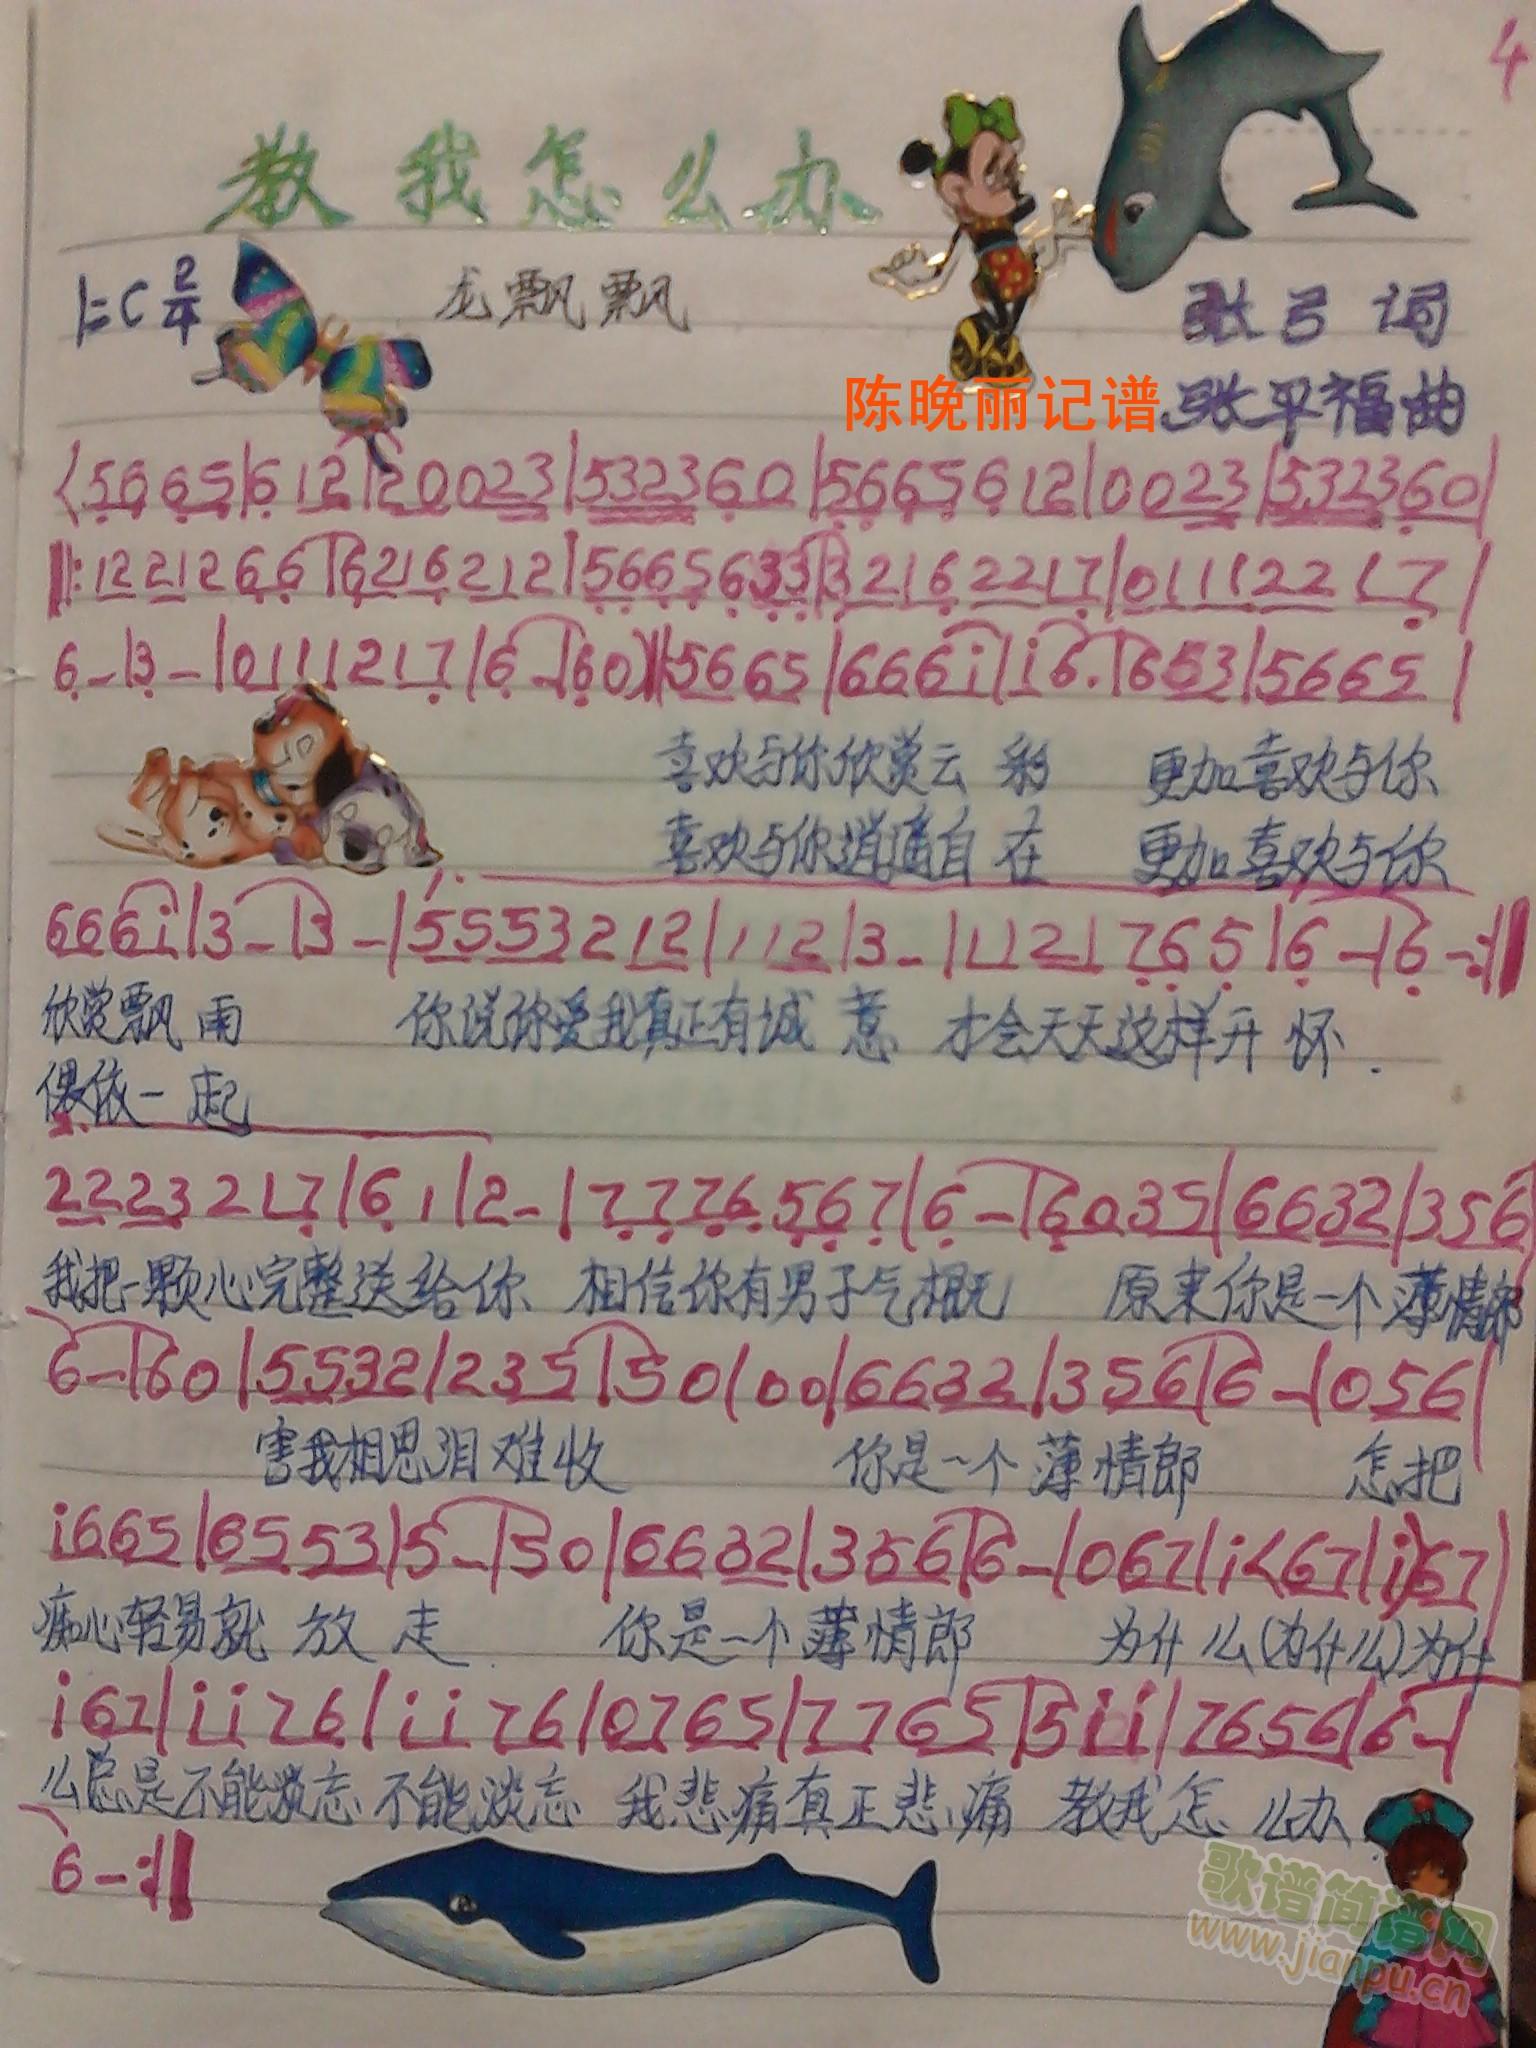 4
教我怎么办
1=C 2/4 龙飘飘 张弓 词
陈晚丽记谱 张平福 曲
(5665|612|2 0023|532360|5665612|0023|532360|
‖:1221266|6216212|5665633|32162217|011122 17|
6-|3-|0111217|6-|60)‖5665|666i|i6.|653|5665|
喜欢与你欣赏云 彩 更加喜欢与你
喜欢与你逍遥自 在 更加喜欢与你
666i|3-|3-|5553212|112|3-|1121765|6-|6-:‖
欣赏飘 雨 你说你爱我真正有诚 意 才会天天这样开 怀.
偎依一 起
2223217|61|2-|7776567|6-|6035|6632|356
我把一颗心完整送给你 相信你有男子气概 原来你是一个薄情郎
6-|60|5532|235|50|00|6632|356|6-|056|
害我相思泪难收 你是一个薄情郎 怎把
i665|6553|5-|50|6632|356|6-|067|i(67|i)67|
痴心轻易就 放 走 你是一个薄情郎 为什么(为什么)为什
i67|ii76|ii76|0765|7765|5ii|7656|6-|
么总是不能淡忘 不能淡忘 我悲痛真正悲痛 教我怎 么办
6-:‖
歌谱简谱网
www.jianpu.cn